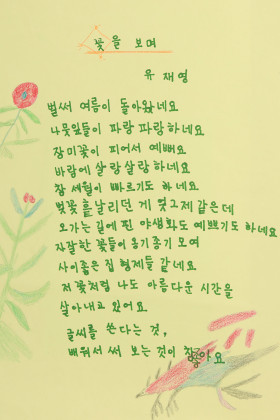 꽃을 보며
유 재영
벌써 여름이 돌아왔네요
나뭇잎들이 파랑 파랑하네요
장미꽃이 피어서 예뻐요
바람에 살랑살랑하네요
참 세월이 빠르기도 하네요
벚꽃 흩날리던 게 엊그제 같은데
오가는 길에 핀 야생화도 예쁘기도 하네요
자잘한 꽃들이 옹기종기 모여
사이좋은 집 형제들 같네요
저 꽃처럼 나도 아름다운 시간을
살아내고 있어요
글씨를 쓴다는 것,
배워서 써 보는 것이 참 좋아요